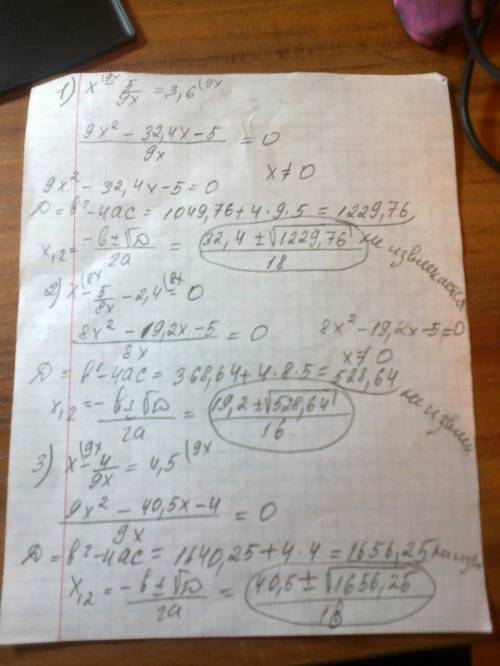 1) x^(9x - 5/9x = 3,6^(9x
(9x² - 32,4x - 5)/9x = 0
x ≠ 0
9x² - 32,4x - 5 = 0
D = b² - 4ac = 1049,76 + 4·9·5 = 1229,76
x₁,₂ = (-b ± √D)/2a = (32,4 ± √1229,76)/18 не извлекается
2) x^(8x - 5/8x - 2,4^(8x = 0
(8x² - 19,2x - 5)/8x = 0 8x² - 19,2x - 5 = 0
x ≠ 0
D = b² - 4ac = 368,64 + 4·8·5 = 528,64
x₁,₂ = (-b ± √D)/2a = (19,2 ± √528,64)/16 не извлек
3) x^(9x - 4/9x = 4,5^(9x
(9x² - 40,5x - 4)/9x = 0
D = b² - 4ac = 1640,25 + 4·4 = 1656,25 не извл
x₁,₂ = (-b ± √D)/2a = (40,5 ± √1656,25)/18